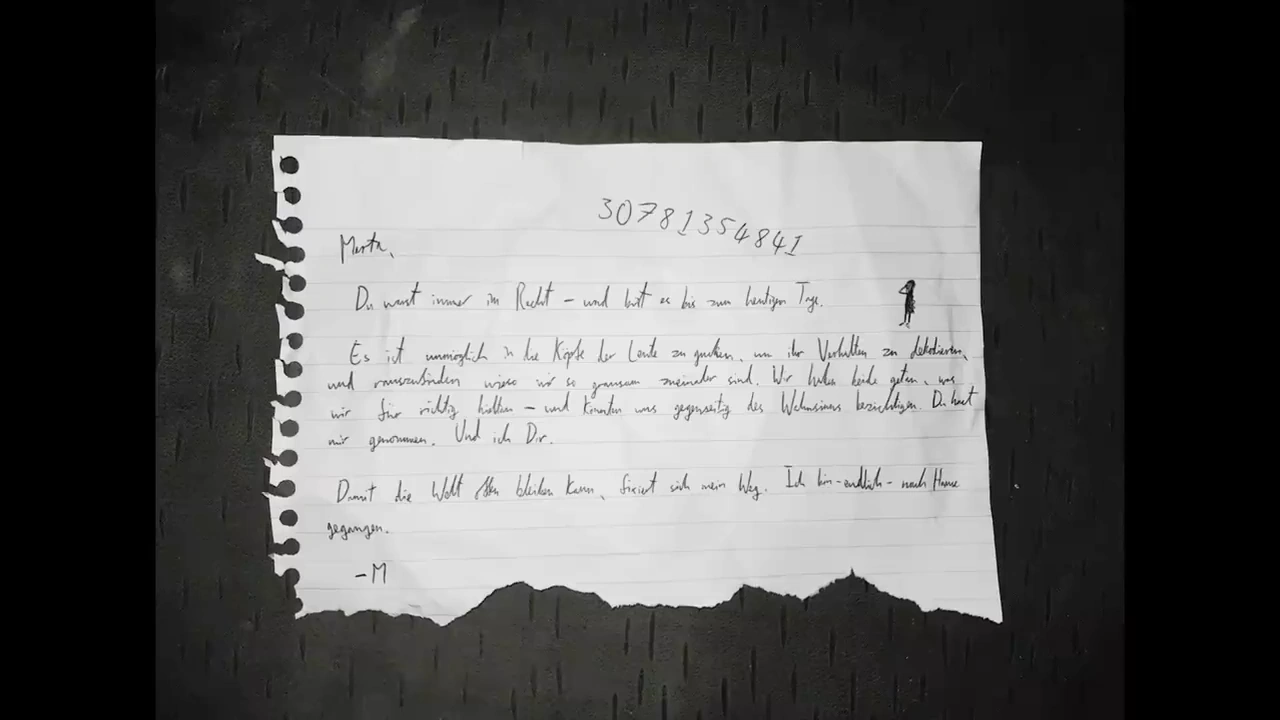 30781354841
Marta,
Du warst immer im Recht – und bist es bis zum heutigen Tage.
Es ist unmöglich in die Köpfe der Leute zu gucken, um ihr Verhalten zu dekodieren,
und rauszufinden wieso wir so grausam zueinander sind. Wir haben beide getan, was
wir für richtig hielten – und konnten uns gegenseitig des Wahnsinns bezichtigen. Du hast
mir genommen. Und ich Dir.
Damit die Welt offen bleiben kann, fixiert sich mein Weg. Ich bin – endlich – nach Hause
gegangen.
– M